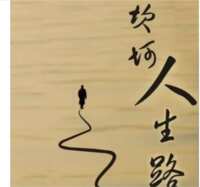 坎坷
人生路